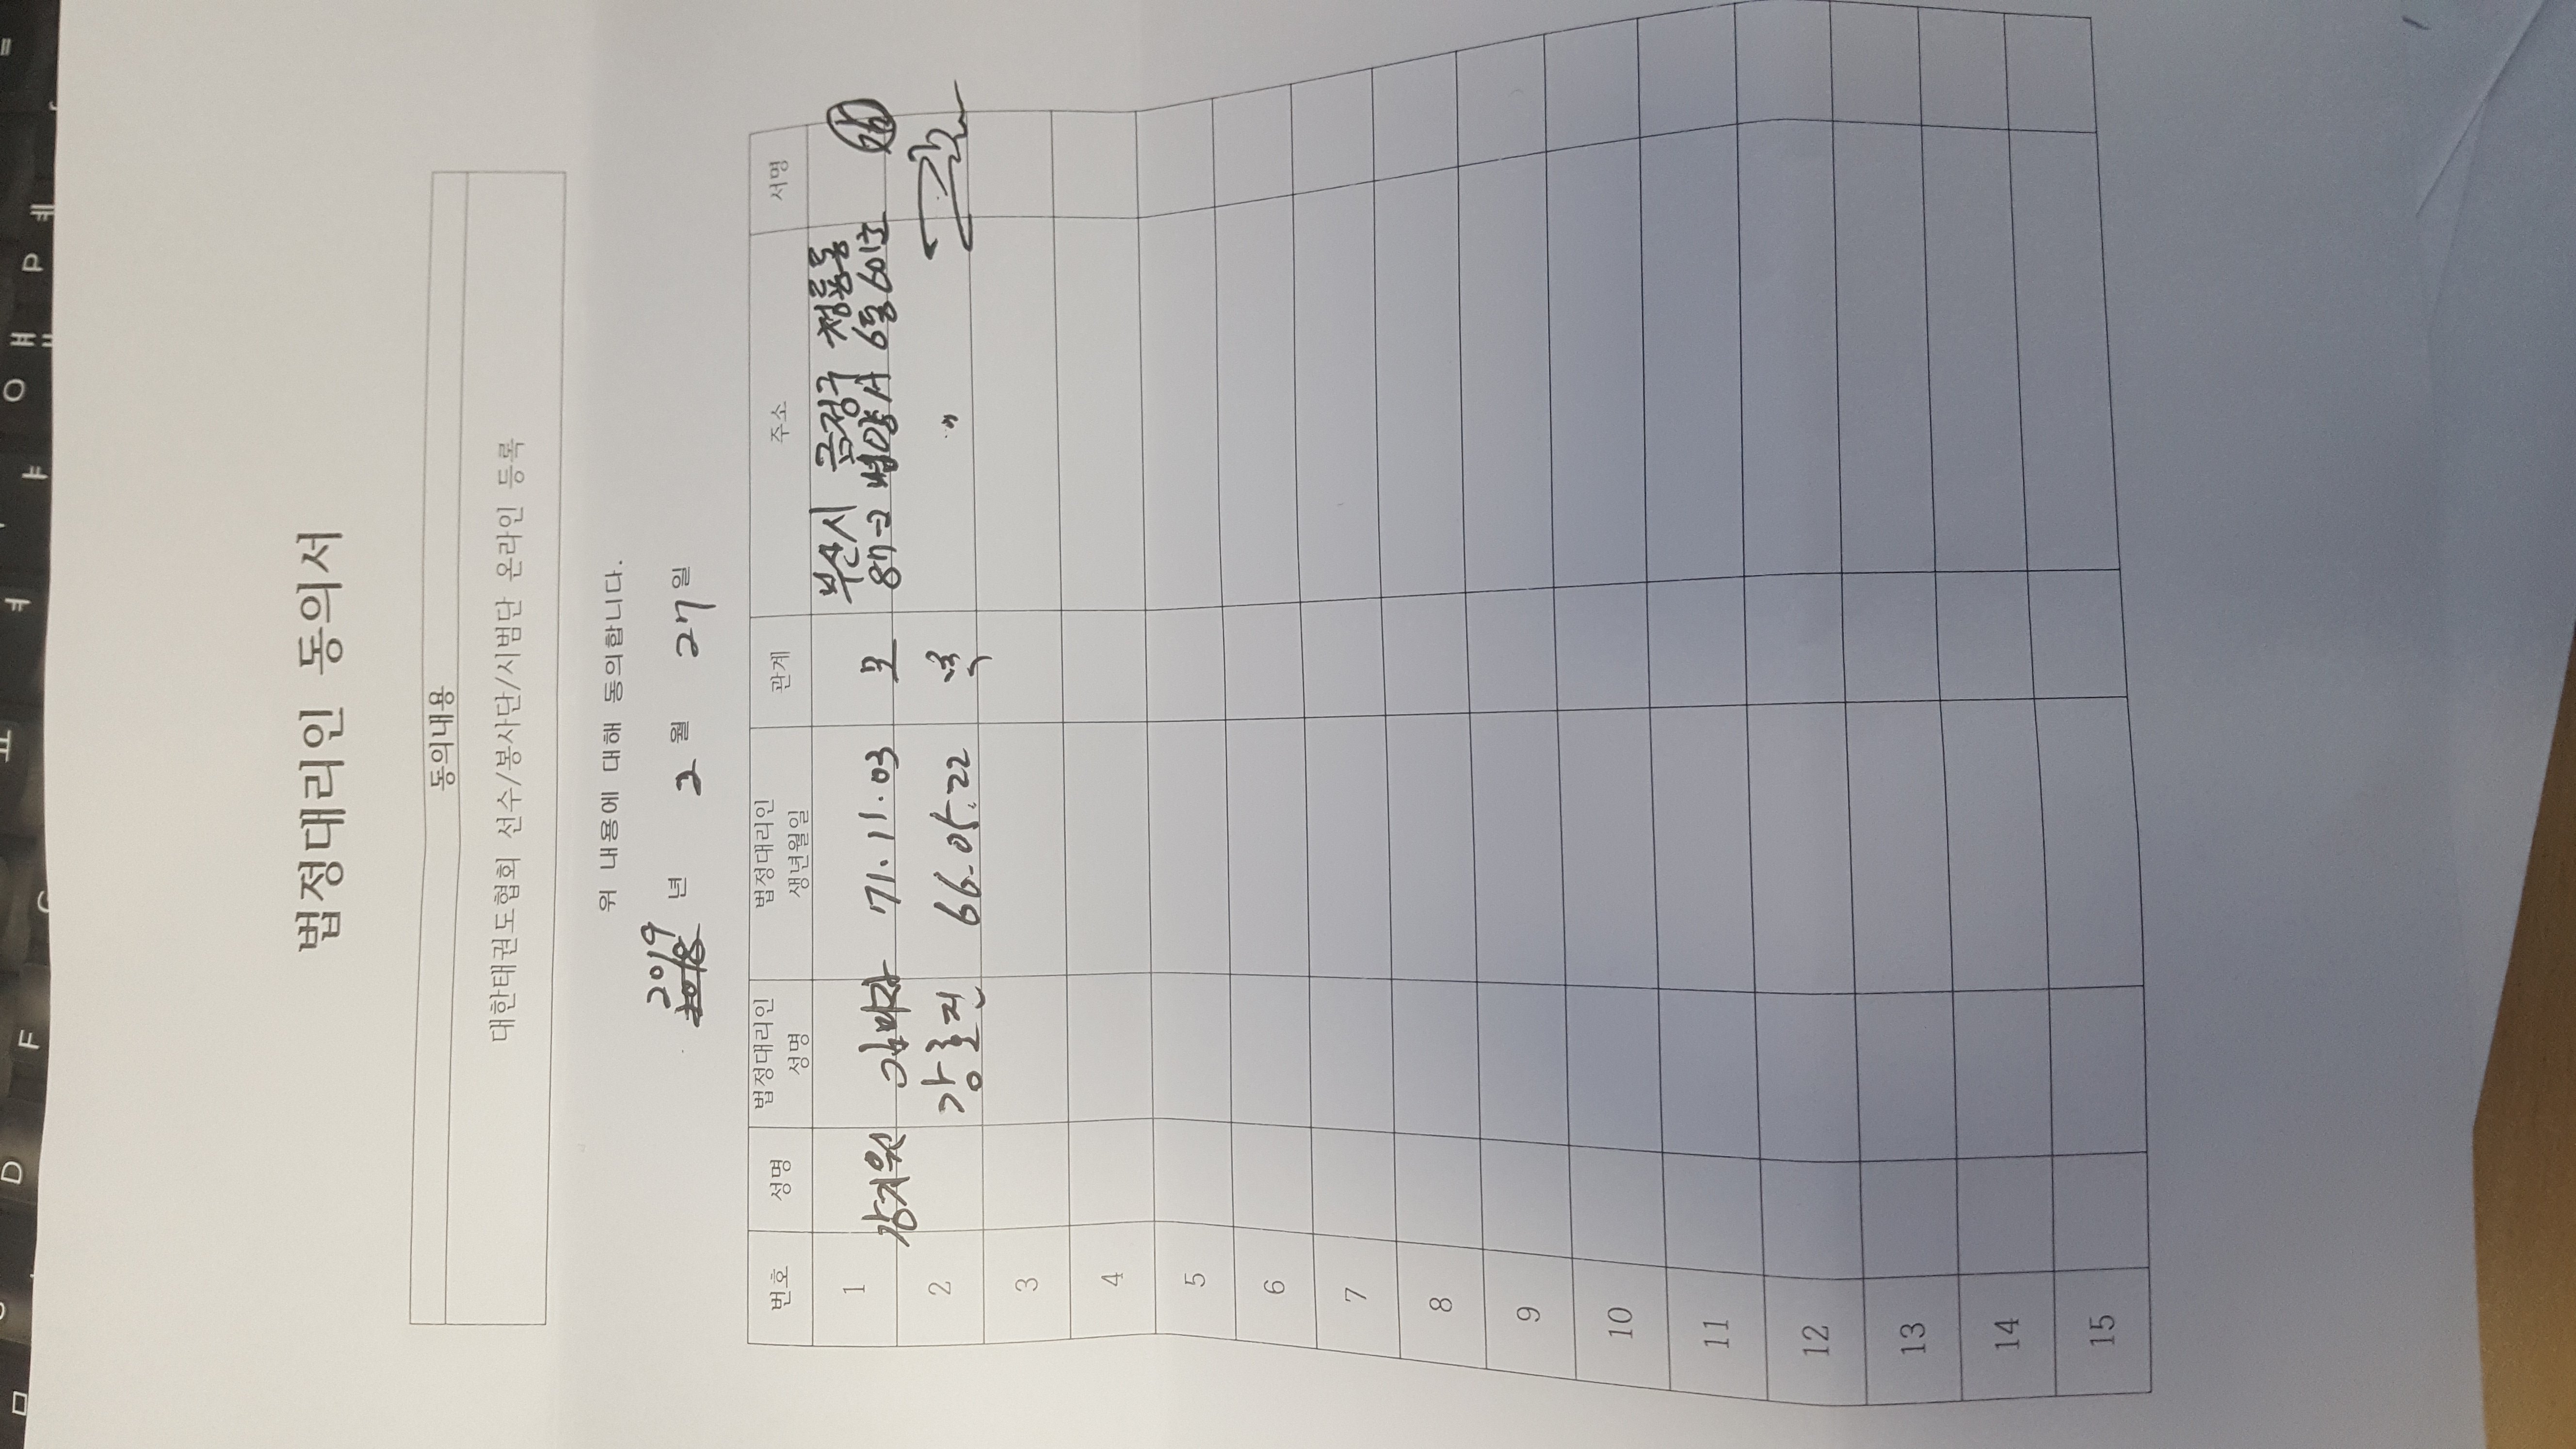 법정대리인 동의서
동의내용
대한태권도협회 선수/봉사단/시범단 온라인 등록
위 내용에 대해 동의합니다.
2019 년 2 월 27 일
번호 성명 법정대리인 성명 법정대리인 생년월일 관계 주소 서명
1 강지원 71.11.03 모 부산시 금정구 청룡동
87-2 범양 6동 601호
2 강호진 66.05.22 부 〃
3
4
5
6
7
8
9
10
11
12
13
14
15